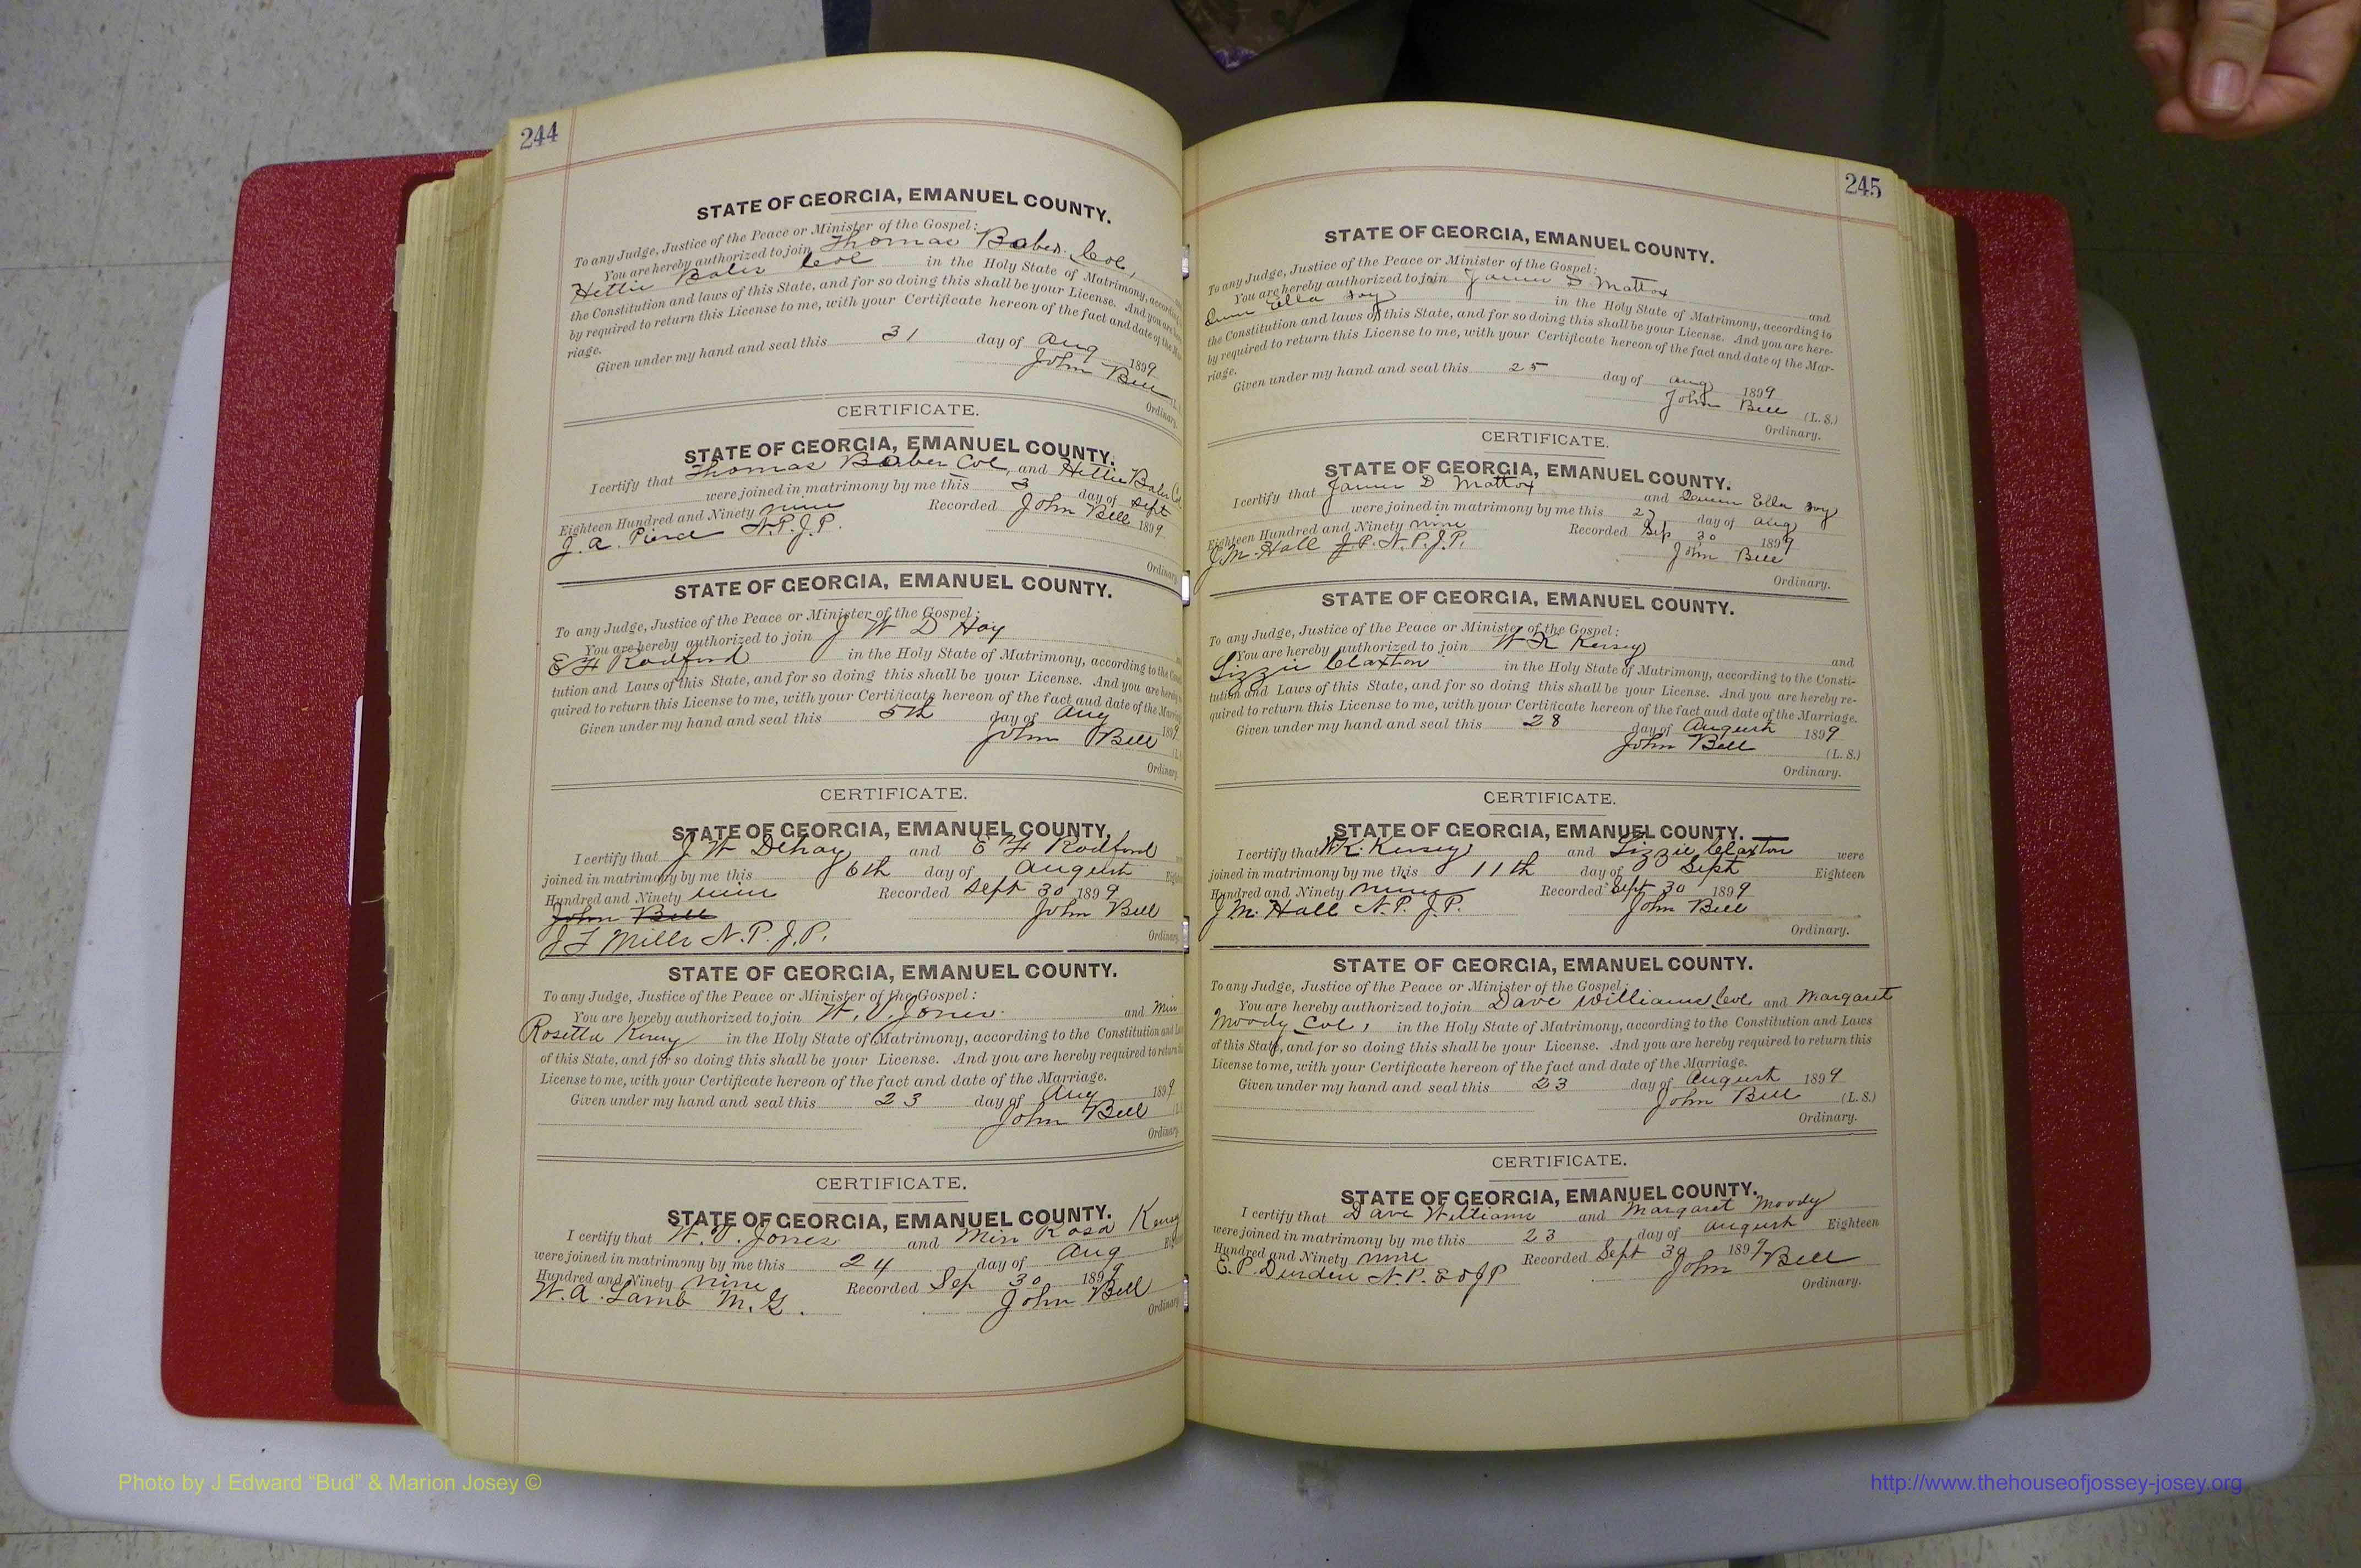 244
STATE OF GEORGIA, EMANUEL COUNTY.
To any Judge, Justice of the Peace or Minister of the Gospel:
You are hereby authorized to join Thomas Baber Col,
Hettie Baber Col in the Holy State of Matrimony, according
the Constitution and laws of this State, and for so doing this shall be your License. And you are
by required to return this License to me, with your Certificate hereon of the fact and date of the
riage.
Given under my hand and seal this 31 day of Aug 1899
John Bell
Ordinary.
CERTIFICATE.
STATE OF GEORGIA, EMANUEL COUNTY.
I certify that Thomas Baber Col, and Hettie Baber
were joined in matrimony by me this 3 day of Sept
Eighteen Hundred and Ninety nine Recorded John Bell 1899
J. A. Pierce N.P.J.P.
Ordinary
STATE OF GEORGIA, EMANUEL COUNTY.
To any Judge, Justice of the Peace or Minister of the Gospel:
You are hereby authorized to join J W D Hay
E H Radford in the Holy State of Matrimony, according to the Consti
tution and Laws of this State, and for so doing this shall be your License. And you are hereby
quired to return this License to me, with your Certificate hereon of the fact and date of the Marriage
Given under my hand and seal this 5th day of Aug 1899
John Bell
Ordinary
CERTIFICATE.
STATE OF GEORGIA, EMANUEL COUNTY,
I certify that J W Dehay and E H Radford
joined in matrimony by me this 6th day of August
Hundred and Ninety nine Recorded Sept 30 1899
John Bell John Bell
J F Mills N.P. J.P. Ordinary
STATE OF GEORGIA, EMANUEL COUNTY.
To any Judge, Justice of the Peace or Minister of the Gospel:
You are hereby authorized to join W. V. Jones and Miss
Rosetta Kersey in the Holy State of Matrimony, according to the Constitution and
of this State, and for so doing this shall be your License. And you are hereby required to return
License to me, with your Certificate hereon of the fact and date of the Marriage.
Given under my hand and seal this 23 day of Aug 1899
John Bell
Ordinary
CERTIFICATE.
STATE OF GEORGIA, EMANUEL COUNTY.
I certify that W. V. Jones and Miss Rosa Kersey
were joined in matrimony by me this 24 day of Aug
Hundred and Ninety nine Recorded Sep 30 1899
W. A. Lamb M. G. John Bell
Ordinary
245
STATE OF GEORGIA, EMANUEL COUNTY.
To any Judge, Justice of the Peace or Minister of the Gospel:
You are hereby authorized to join James D Mattox and
Ella in the Holy State of Matrimony, according to
the Constitution and laws of this State, and for so doing this shall be your License. And you are here-
by required to return this License to me, with your Certificate hereon of the fact and date of the Mar-
riage.
Given under my hand and seal this 25 day of Aug 1899
John Bell (L. S.)
Ordinary.
CERTIFICATE.
STATE OF GEORGIA, EMANUEL COUNTY.
I certify that James D Mattox and Ella
were joined in matrimony by me this 27 day of Aug
Eighteen Hundred and Ninety nine Recorded Sep 30 1899
J M. Hall J P. N. P. J. P. John Bell
Ordinary.
STATE OF GEORGIA, EMANUEL COUNTY.
To any Judge, Justice of the Peace or Minister of the Gospel:
You are hereby authorized to join W K Kersey and
Lizzie Claxton in the Holy State of Matrimony, according to the Consti-
tution and Laws of this State, and for so doing this shall be your License. And you are hereby re-
quired to return this License to me, with your Certificate hereon of the fact and date of the Marriage.
Given under my hand and seal this 28 day of August 1899
John Bell (L. S.)
Ordinary.
CERTIFICATE.
STATE OF GEORGIA, EMANUEL COUNTY.
I certify that W K. Kersey and Lizzie Claxton were
joined in matrimony by me this 11th day of Sept Eighteen
Hundred and Ninety nine Recorded Sept 30 1899
J M. Hall N. P. J. P. John Bell
Ordinary.
STATE OF GEORGIA, EMANUEL COUNTY.
To any Judge, Justice of the Peace or Minister of the Gospel:
You are hereby authorized to join Dave Williams Col and Margaret
Moody Col, in the Holy State of Matrimony, according to the Constitution and Laws
of this State, and for so doing this shall be your License. And you are hereby required to return this
License to me, with your Certificate hereon of the fact and date of the Marriage.
Given under my hand and seal this 23 day of August 1899
John Bell (L. S.)
Ordinary.
CERTIFICATE.
STATE OF GEORGIA, EMANUEL COUNTY.
I certify that Dave Williams and Margaret Moody
were joined in matrimony by me this 23 day of August Eighteen
Hundred and Ninety nine Recorded Sept 30 1899
E. P. Durden N. P. & J P John Bell
Ordinary.
Photo by J Edward “Bud” & Marion Josey ©
http://www.thehouseofjossey-josey.org